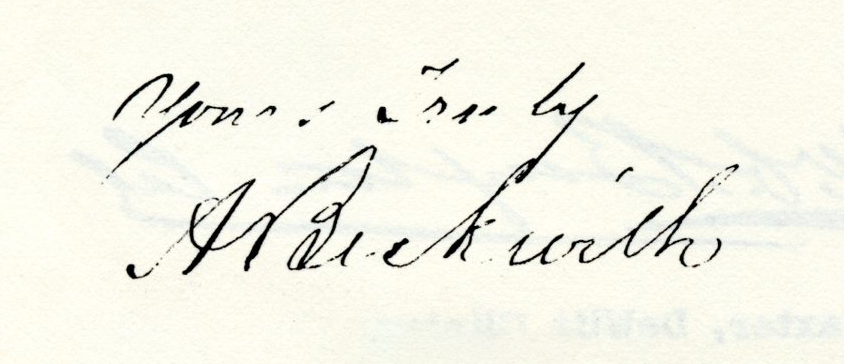 Yours Truly
A Beckwith